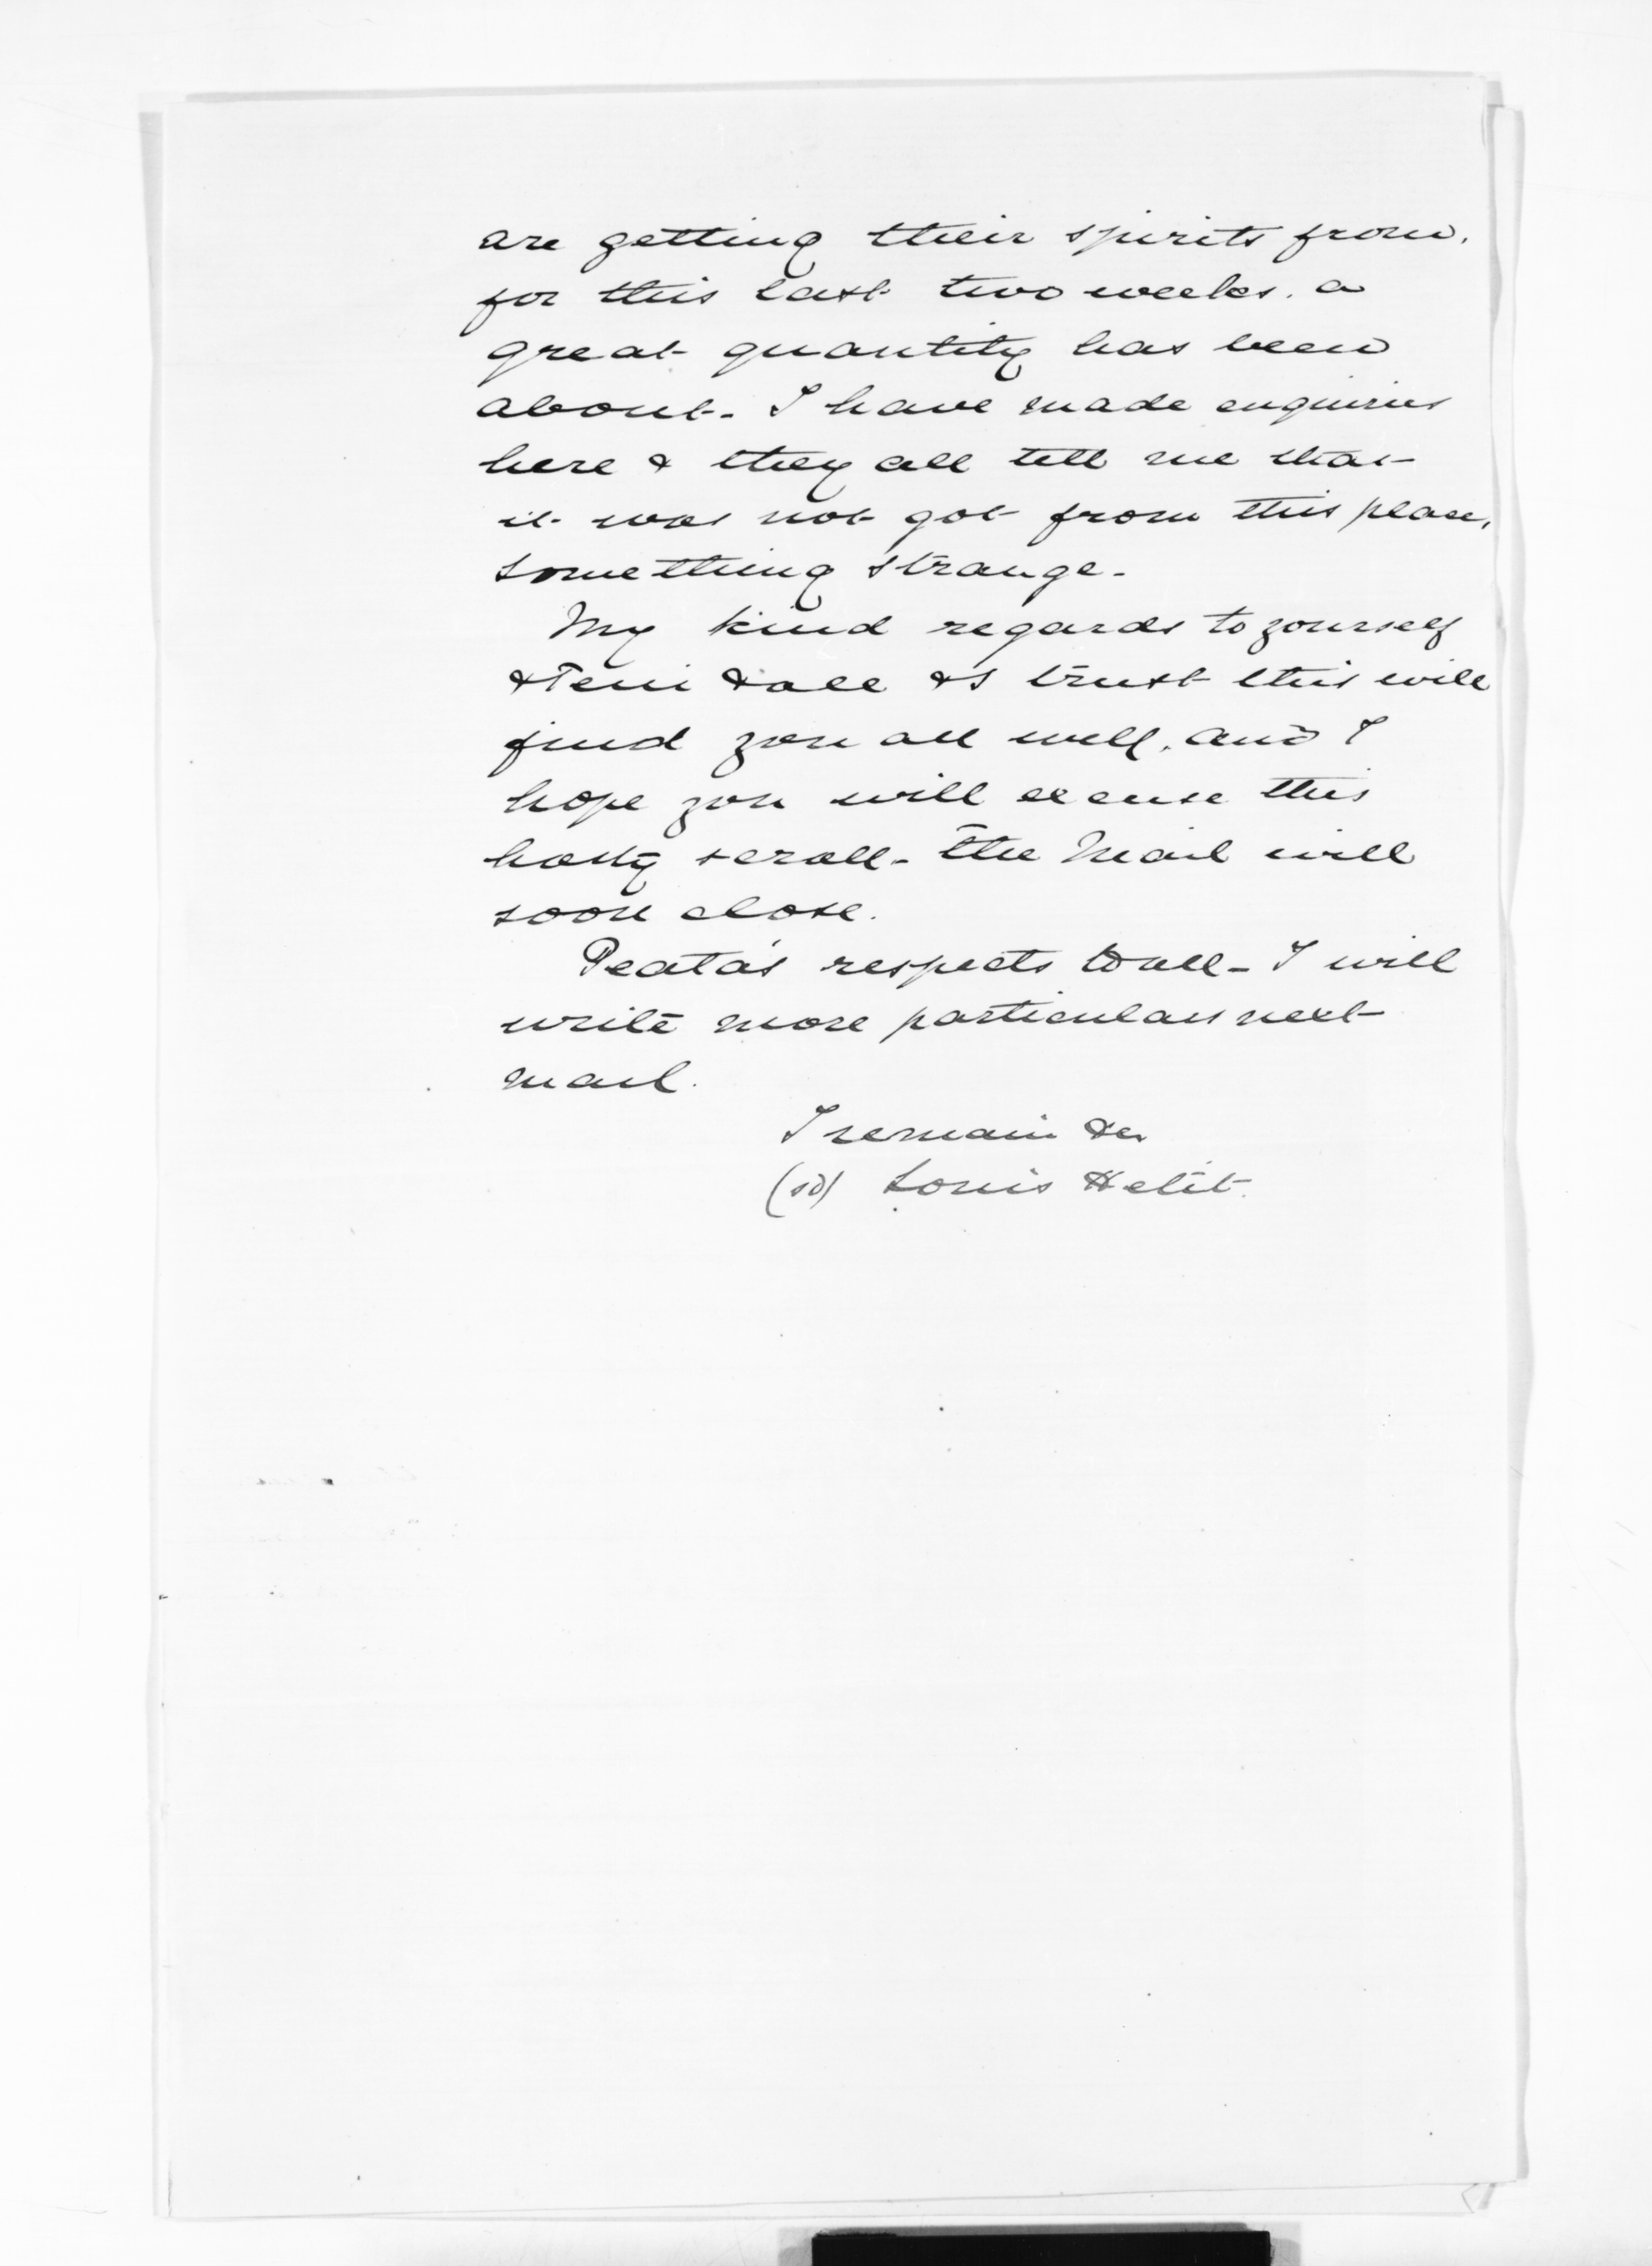 are getting their spirits from.
for this last two weeks. a
great quantity has been
about. I have made enquiries
here & they all tell me that
it was not got from this place,
something strange.
My kind regards to yourself
& Teni & all & I trust this will
find you all well. and I
hope you will excuse this
hasty scroll - the Mail will
soon close.
Peata's respects to all - I will
write more particulars next
mail.
I remain &c
(sd) Louis Hetit.